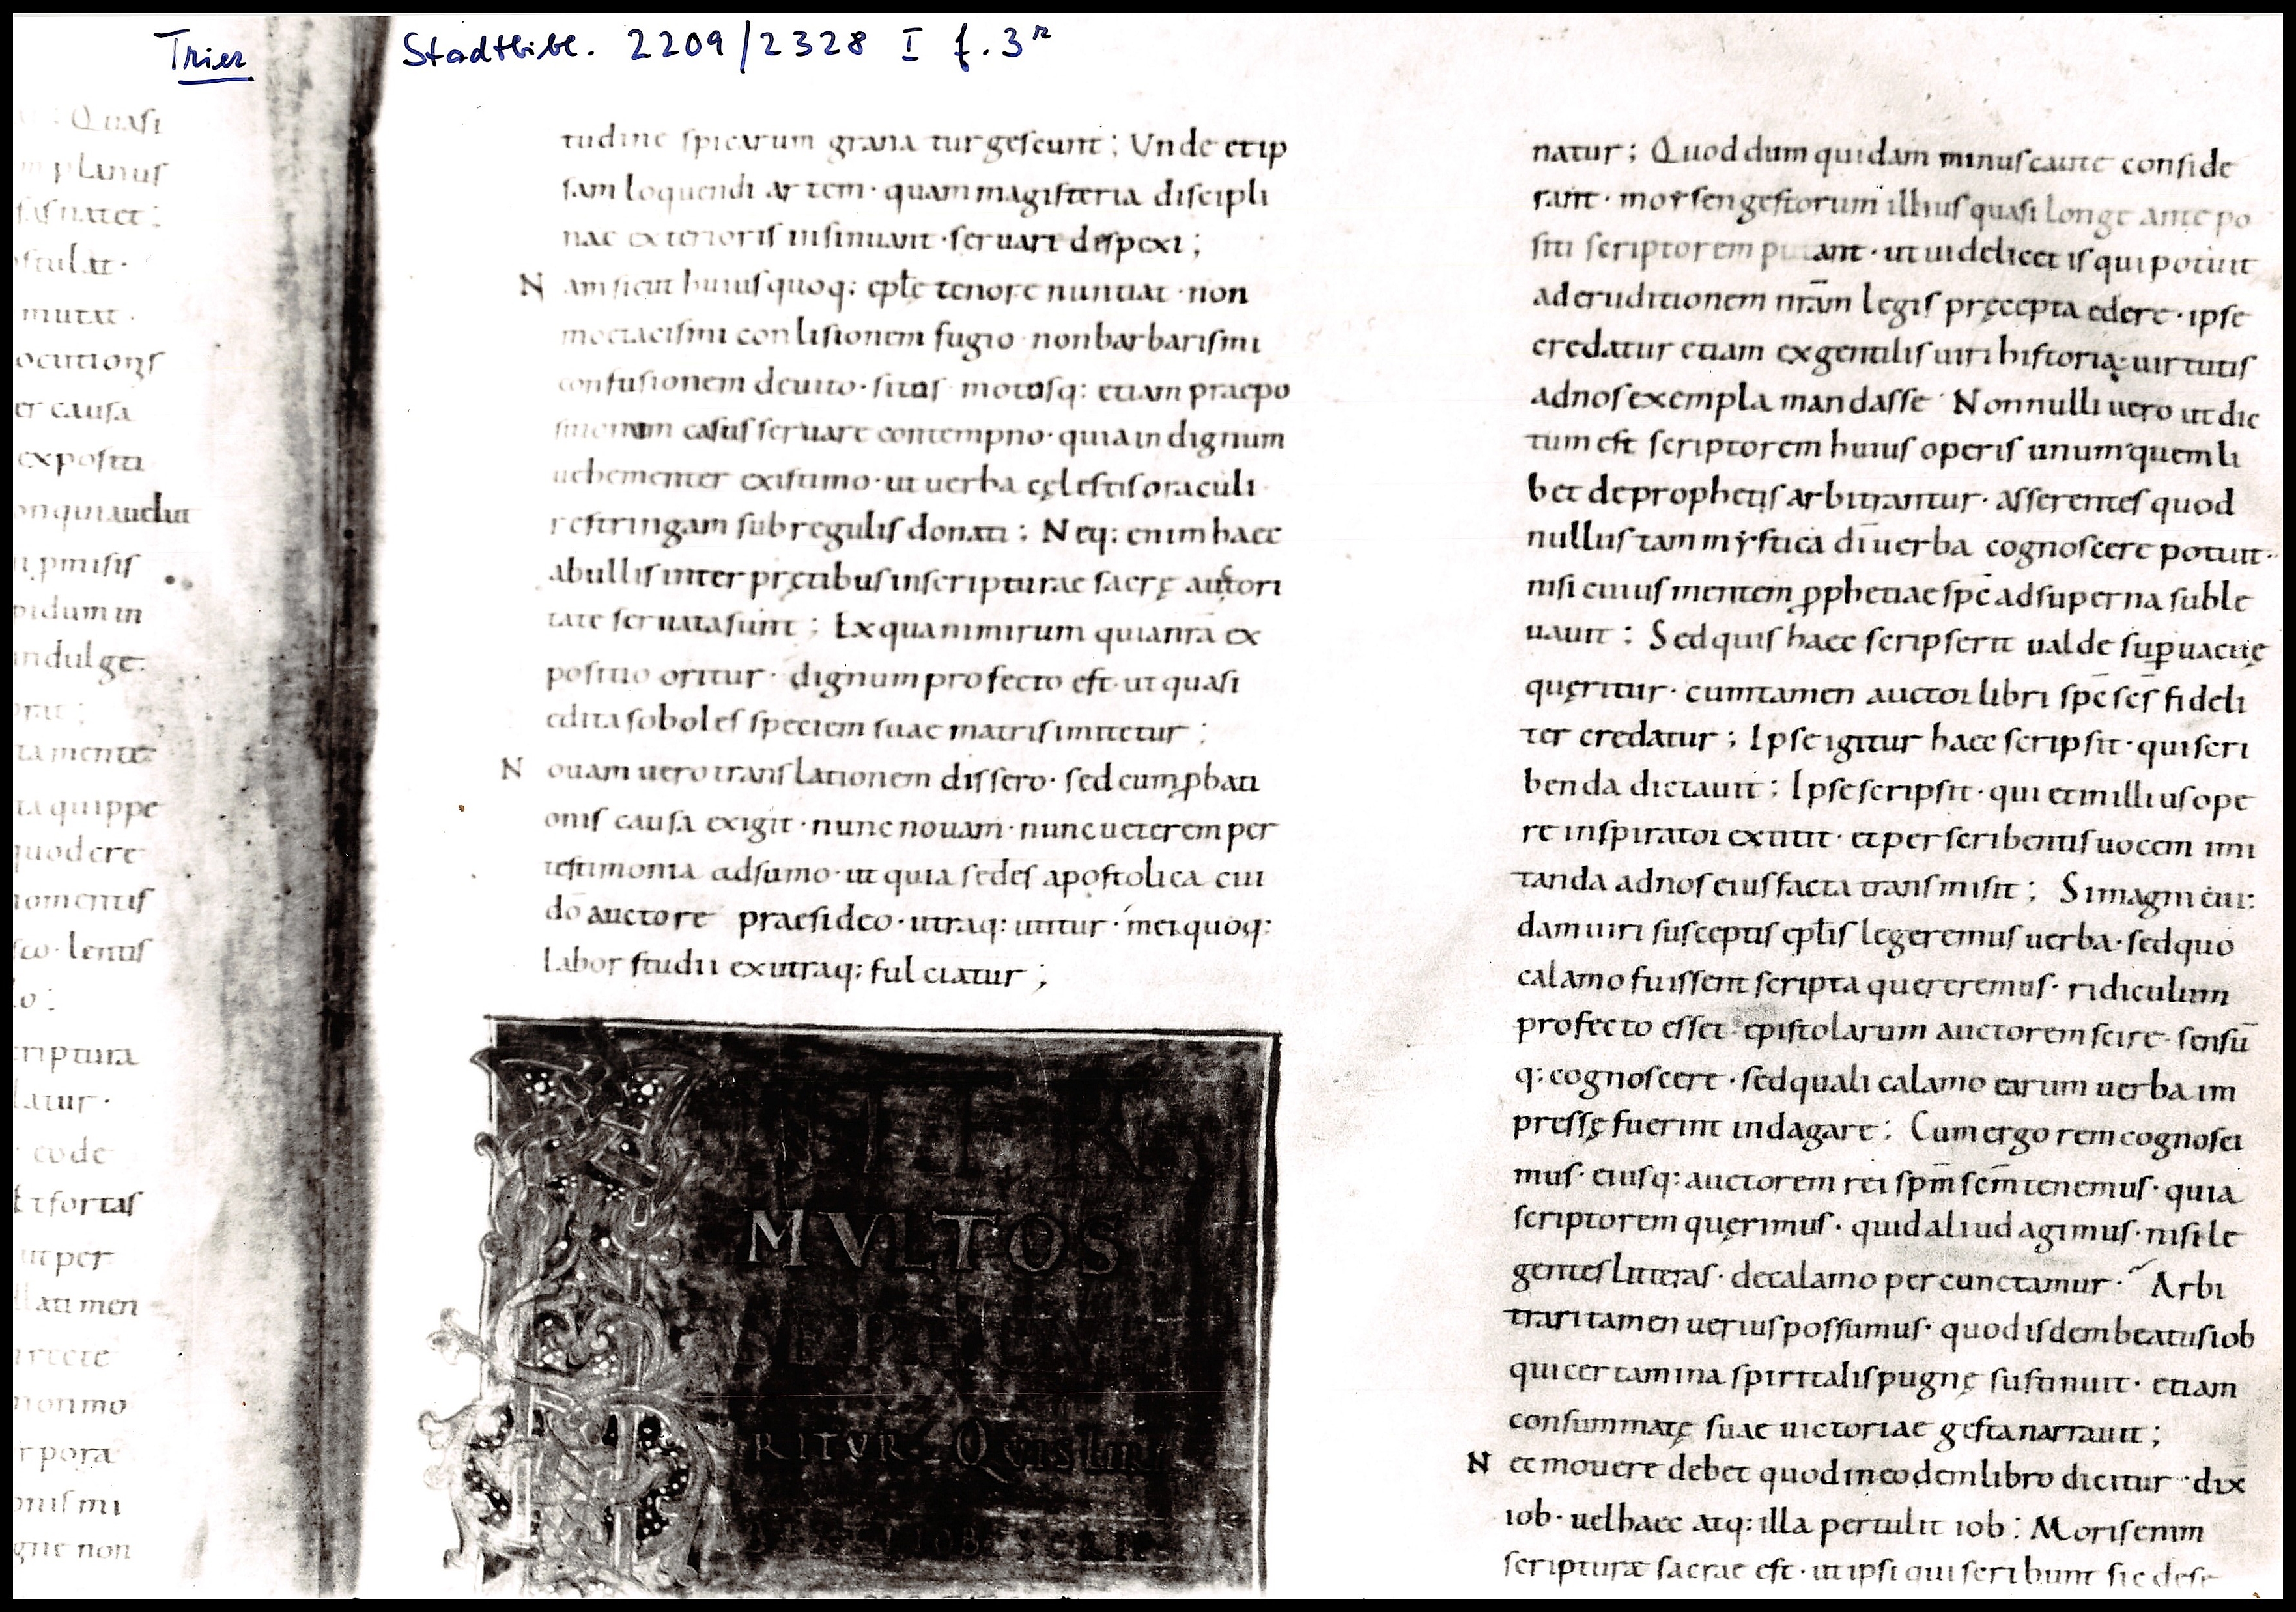 Trier Stadtbibl. 2209/2328 I f. 3r
Quasi
planus
natet :
stulat ·
mutat ·
er causa
expositi
pmisis
pidum in
ndulge:
ta mente
ta quippe
quod ere
momentis
lentis
criptura
latur ·
eode
Et fortas
ut per
lati men
non mo
pora
mi
gne non
tudine spicarum grana turgescunt ; Unde et ip
sam loquendi artem · quam magisteria discipli
nae exterioris insinuant · servari despexi ;
N am sicut huius quoq: eple tenore nuntiat · non
moetacismi conlisionem fugio · non barbarismi
confusionem devito · situs motusq: etiam praepo
sitionum casus servare contempno · quia indignum
vehementer existimo · ut verba cęlestis oraculi
restringam sub regulis donati ; Neq: enim haec
ab ullis interpretibus in scripturae sacrę auctori
tate servata sunt ; Ex qua nimirum quia nrā ex
positio oritur · dignum profecto est · ut quasi
edita soboles speciem suae matris imitetur ;
N ovam vero translationem dissero · sed cum ꝓbati
onis causa exigit · nunc novam · nunc veterem per
testimonia adsumo · ut quia sedes apostolica cui
dō auctore praesideo · utraq: utitur · mei quoq:
labor studii ex utraq: fulciatur ;
MVLTOS
SEPE QVE
RITVR QVIS LIBRI
IOB SCRIP
natur ; Quod dum quidam minus caute conside
rant · moẏsen gestorum illius quasi longe ante po
siti scriptorem putant · ut videlicet is qui potuit
ad eruditionem nrām legis pręcepta edere · ipse
credatur etiam ex gentilis viri historia · virtutis
ad nos exempla mandasse · Nonnulli vero ut dic
tum est scriptorem huius operis unum quemli
bet de prophetis arbitrantur · asserentes quod
nullus tam mẏstica dī verba cognoscere potuit ·
nisi cuius mentem ꝓphetiae spc̄ ad superna suble
vavit ; Sed quis haec scripserit valde suꝑvacuę
quęritur · cum tamen auctor libri spc̄ scs̄ fideli
ter credatur ; Ipse igitur haec scripsit · qui scri
benda dictavit ; Ipse scripsit · qui et in illius ope
re inspirator extitit · et per scribentis vocem imi
tanda ad nos eius facta transmisit ; Si magni cui:
dam viri susceptis eplis legeremus verba · sed quo
calamo fuissent scripta quereremus · ridiculum
profecto esset epistolarum auctorem scire · sensū
q: cognoscere · sed quali calamo earum verba im
pressę fuerint indagare ; Cum ergo rem cognosci
mus · eiusq: auctorem rei spm̄ scm̄ tenemus · quia
scriptorem quęrimus · quid aliud agimus · nisi le
gentes litteras · de calamo percunctamur · Arbi
trari tamen verius possumus · quod isdem beatus iob
qui certamina spiritalis pugnę sustinuit · etiam
consummatę suae victoriae gesta narravit ;
N ec movere debet quod in eodem libro dicitur · dix̄
iob · vel haec atq: illa pertulit iob ; Moris enim
scripturæ sacrae est · ut ipsi qui scribunt sic dese